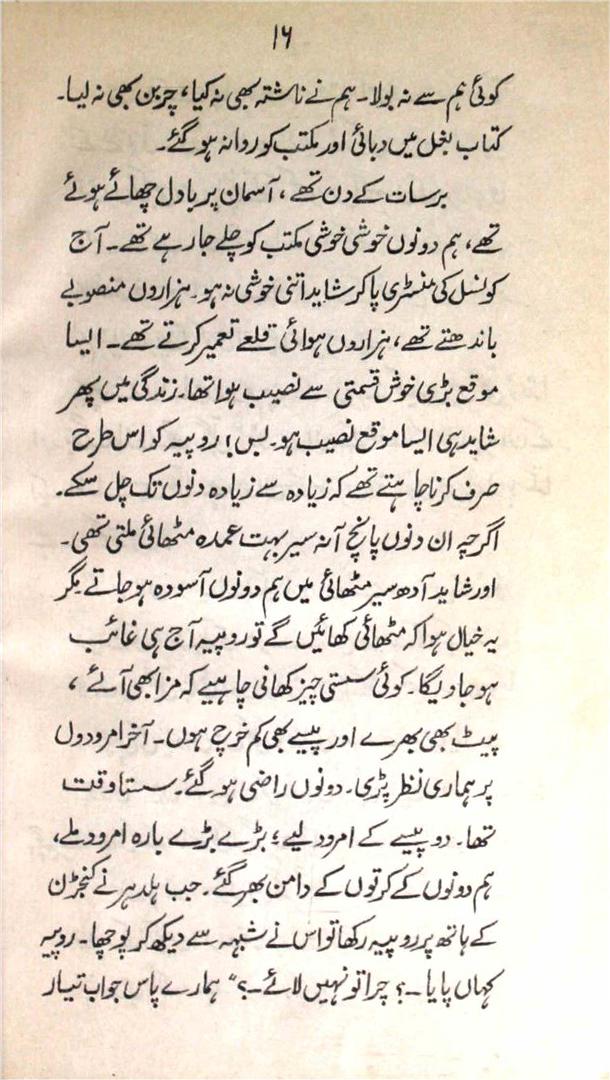 ۱۶
کوئی ہم سے نہ بولا۔ ہم نے ناشتہ بھی نہ کیا، چربن بھی نہ لیا۔
کتاب بغل میں دبائی اور مکتب کو روانہ ہو گئے۔
برسات کے دن تھے، آسمان پر بادل چھائے ہوئے
تھے، ہم دونوں خوشی خوشی مکتب کو چلے جا رہے تھے۔ آج
کونسل کی منسٹری پا کر شاید اتنی خوشی نہ ہو۔ ہزاروں منصوبے
باندھتے تھے، ہزاروں ہوائی قلعے تعمیر کرتے تھے۔ ایسا
موقع بڑی خوش قسمتی سے نصیب ہوا تھا۔ زندگی میں پھر
شاید ہی ایسا موقع نصیب ہو۔ بس! روپیہ کو اس طرح
صرف کرنا چاہتے تھے کہ زیادہ سے زیادہ دنوں تک چل سکے۔
اگرچہ ان دنوں پانچ آنہ سیر بہت عمدہ مٹھائی ملتی تھی۔
اور شاید آدھ سیر مٹھائی میں ہم دونوں آسودہ ہو جاتے مگر
یہ خیال ہوا کہ مٹھائی کھائیں گے تو روپیہ آج ہی غائب
ہو جاویگا۔ کوئی سستی چیز کھانی چاہیے کہ مزا بھی آئے،
پیٹ بھی بھرے اور پیسے بھی کم خرچ ہوں۔ آخر امرودوں
پر ہماری نظر پڑی۔ دونوں راضی ہو گئے۔ سستا وقت
تھا۔ دو پیسے کے امرود لیے؛ بڑے بڑے بارہ امرود ملے،
ہم دونوں کے کرتوں کے دامن بھر گئے۔ جب ہلدھر نے کنجڑن
کے ہاتھ پر روپیہ رکھا تو اس نے شبہہ سے دیکھ کر پوچھا۔ روپیہ
کہاں پایا۔؟ چرا تو نہیں لائے۔؟" ہمارے پاس جواب تیار